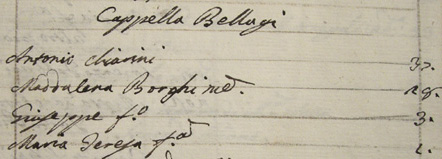 Cappella Bellagi
Antonio Chiarini 32.
Maddalena Borghi med. 28.
Giuseppe f.o 3.
Maria Teresa f.a 2.